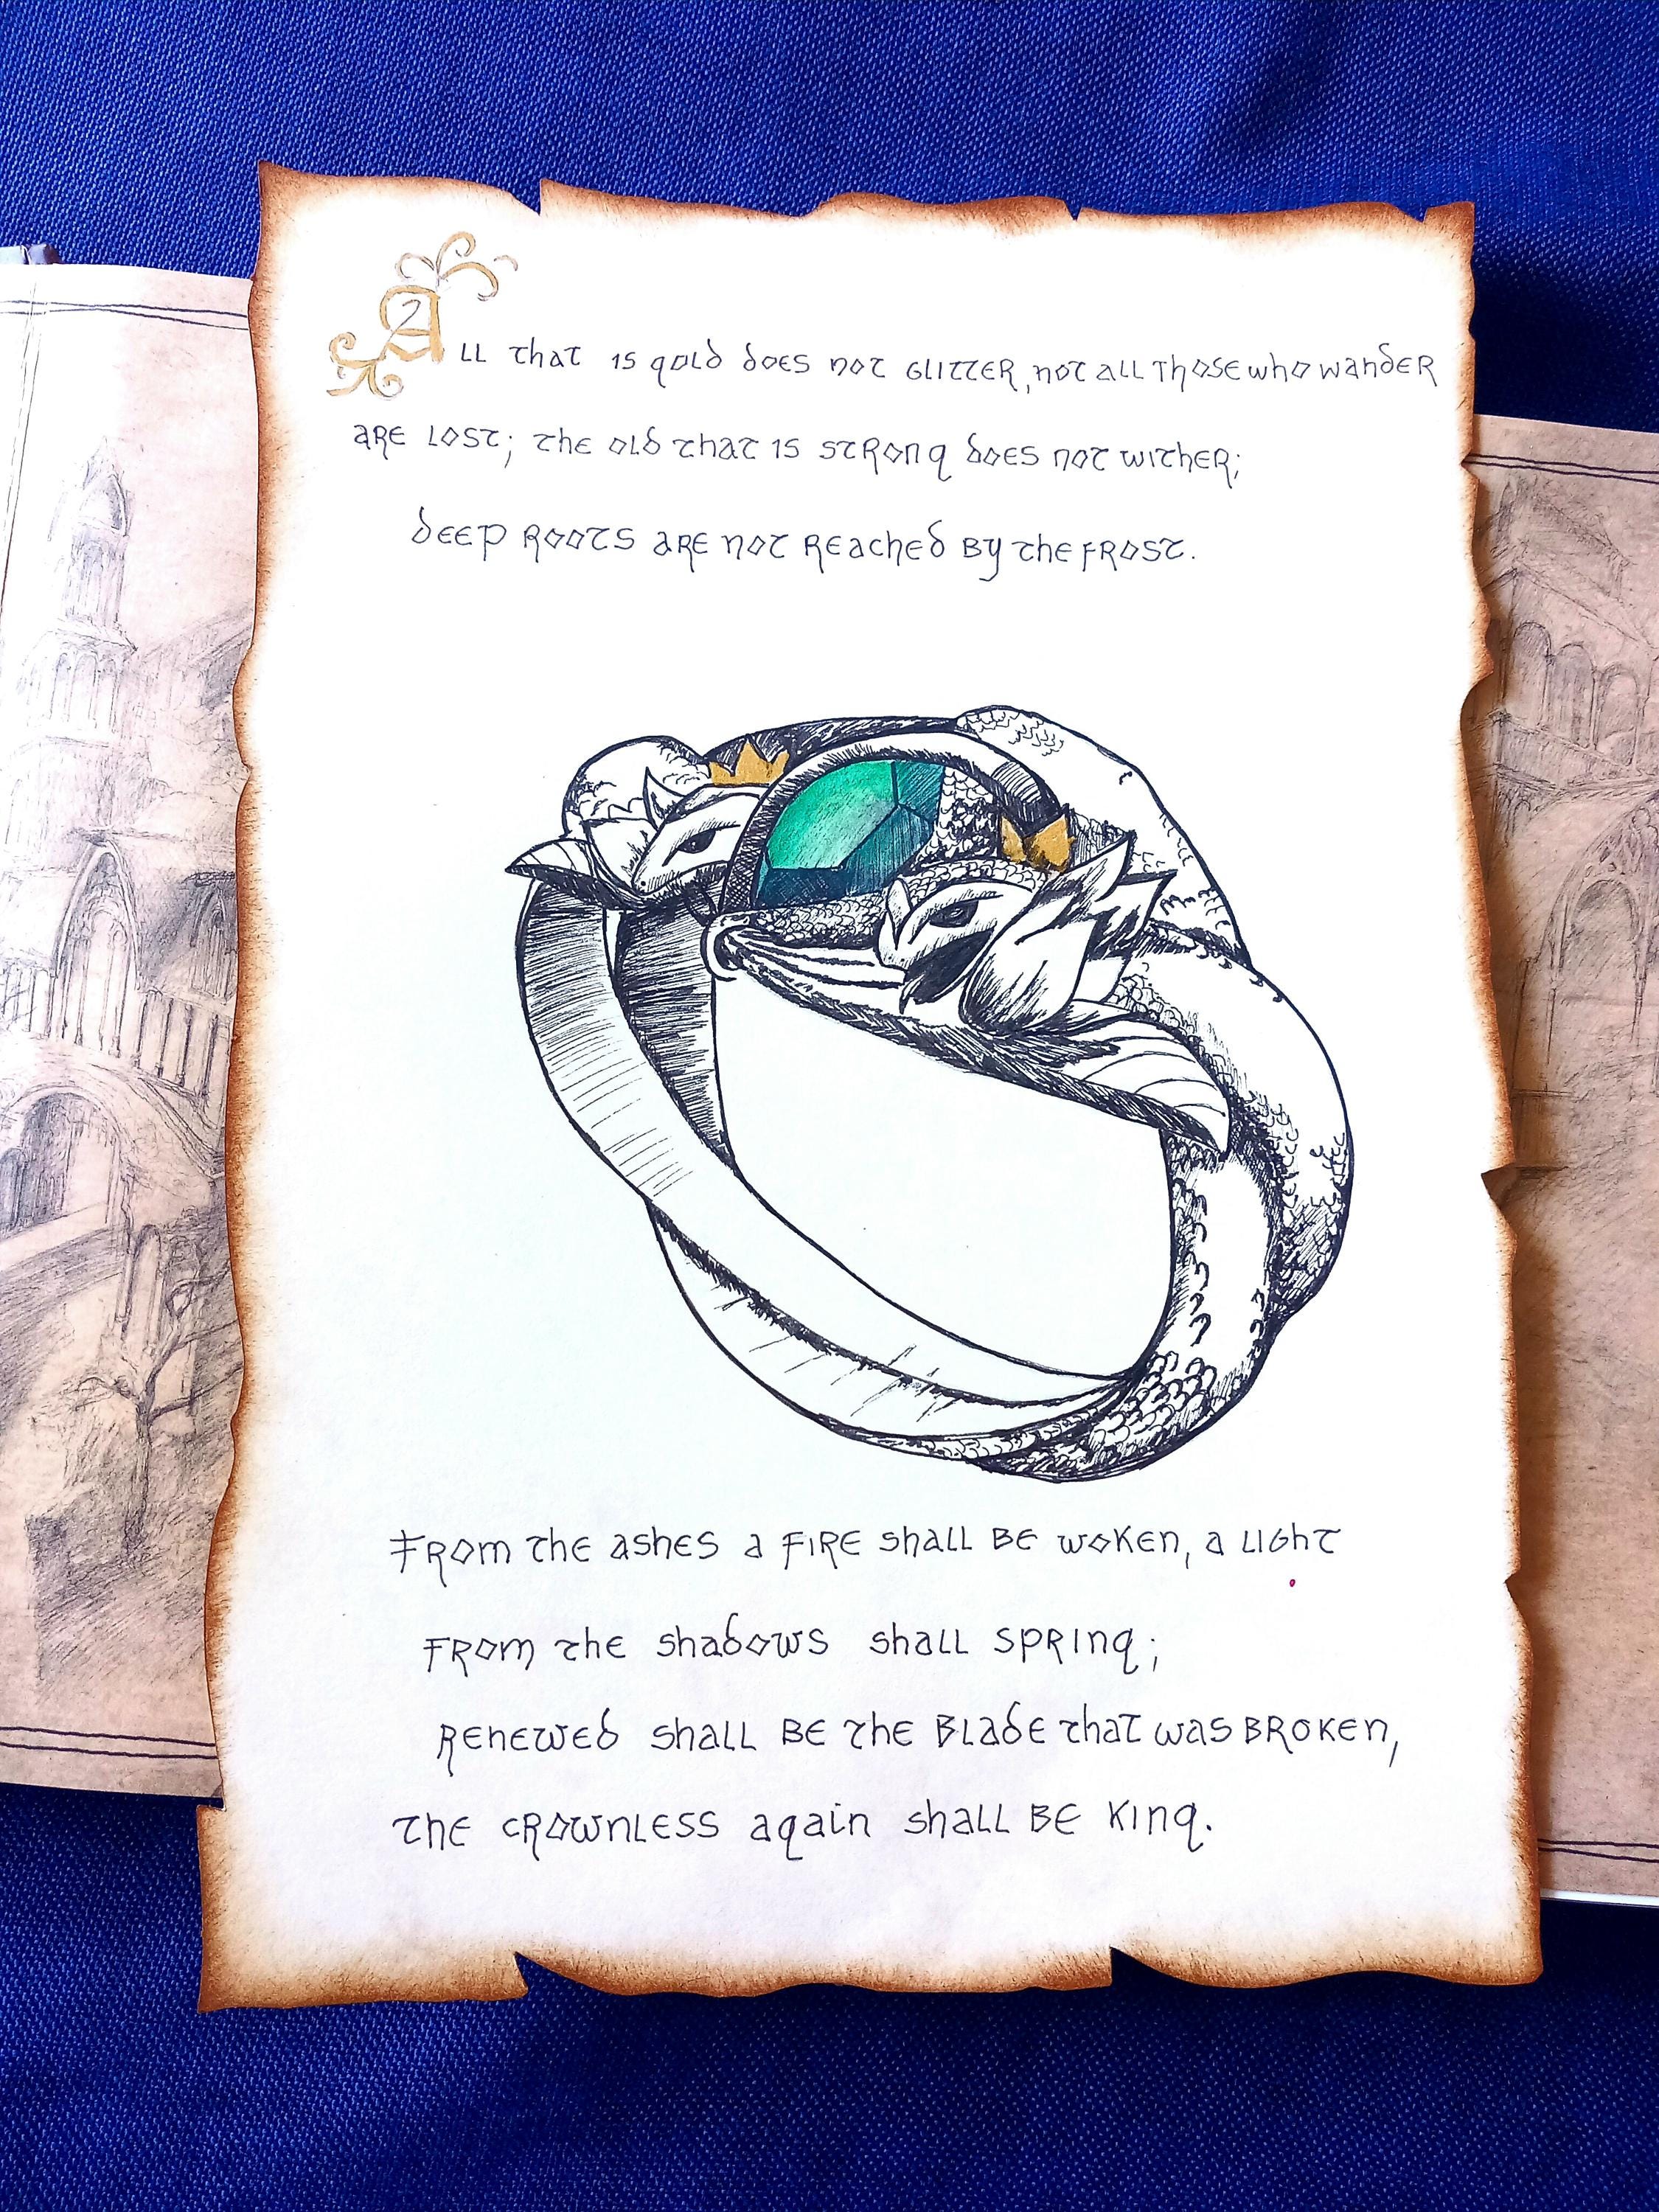 All that is gold does not glitter, not all those who wander
are lost; the old that is strong does not wither;
deep roots are not reached by the frost.
From the ashes a fire shall be woken, a light
from the shadows shall spring;
renewed shall be the blade that was broken,
the crownless again shall be king.